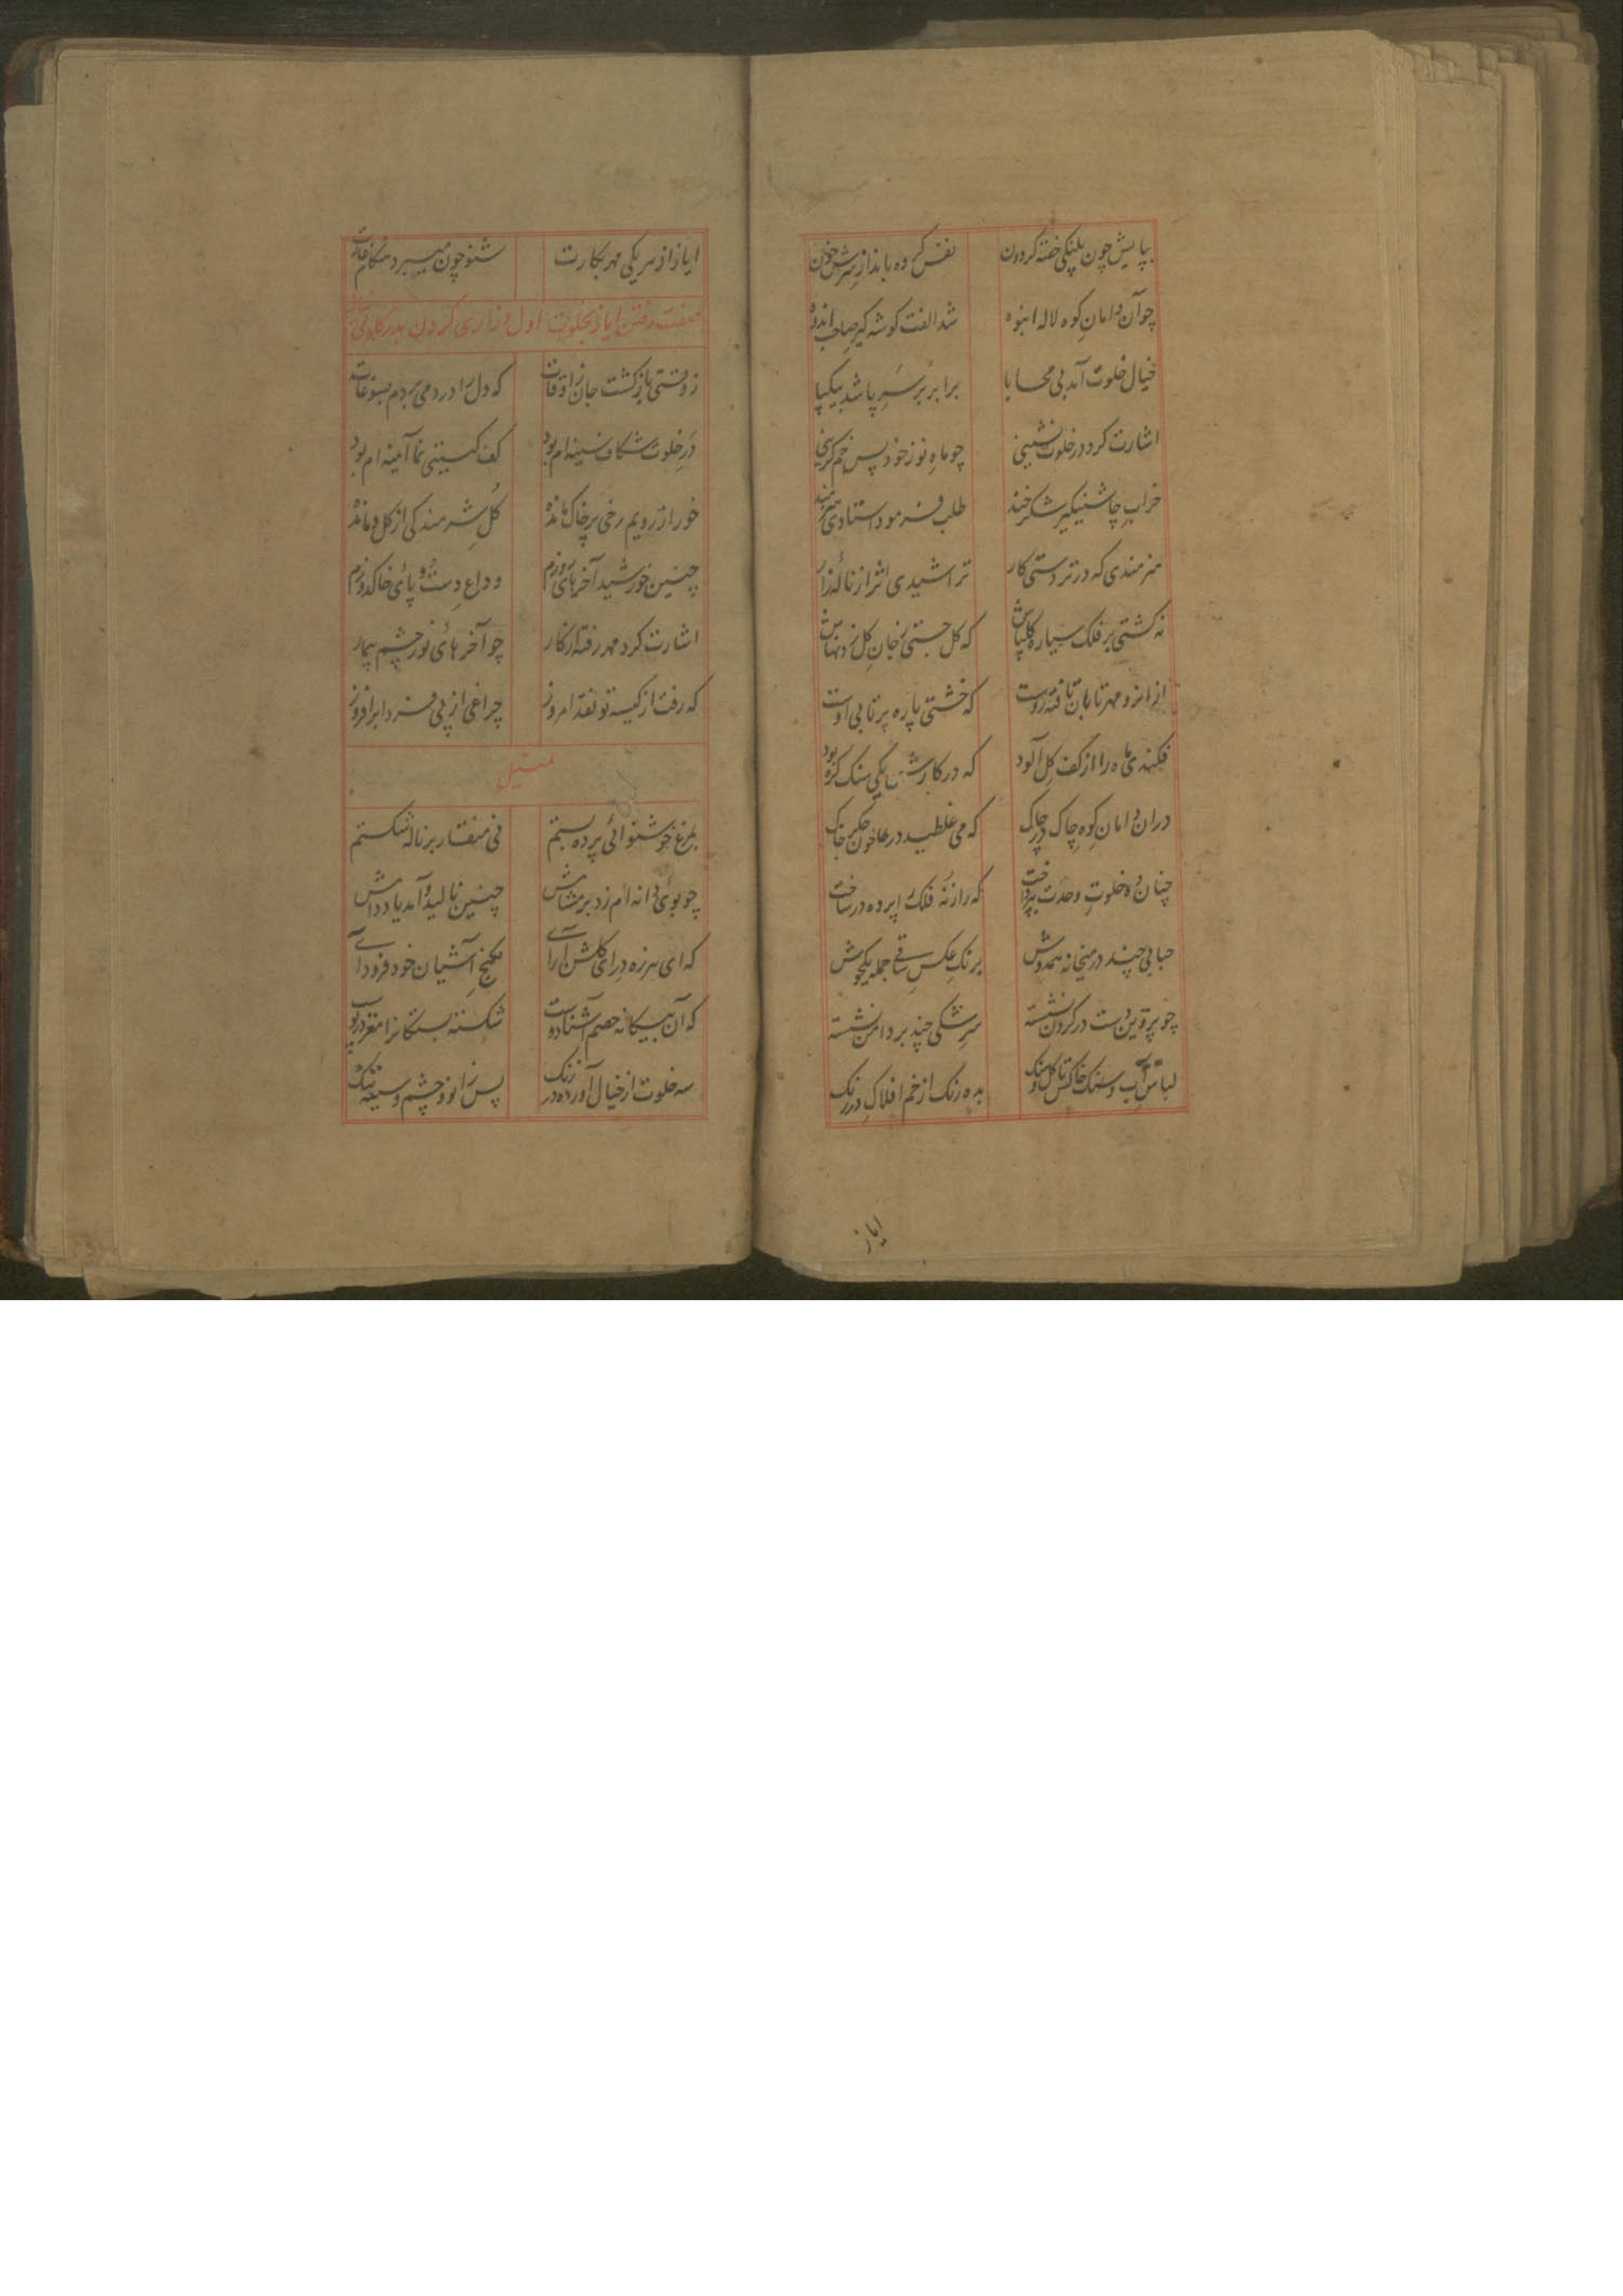 بپایش چون پلنکی خفته کردون نفس کرده باندازسرش خون
چوآن دامان کوه لاله انبوه شد الفت کوشه کیر صاحب اندوه
خیال خلوت آمد بی محابا برابر بر سر پا شد بیکپا
اشارت کرد در خلوت نشینی چو ماه نو ز خود پس خم کزینی
خراب چاشنیکیر شکرخند طلب فرمود استادی هنرمند
هنرمندی که در تردستی کار تراشیدی اثر از ناله زار
نه کشتی بر فلک سیاره کلپاش که کل جستی ز جان کل
ازانرو مهر تابان تافته روست که خشتی پاره پرتابی اوست
فکندی ماه را از کف کل آلود که در کارش یکی سنک کره بود
دران دامان کوه چاک در چاک که می غلطید درها خون جکر خاک
چنان ده خلوت وحدت بپرداخت که راز نه فلک را پرده در ساخت
حبابی چند در میخانه همدوش برنک عکس ساقی جمله یکجوش
چو پروین دست در کردن نشسته سرشکی چند بر دامن نشسته
لباس آب و سنک خاکش تا کل و سنک بده رنک از خم افلاک در رنک
ایاز
ایاز از سر یکی مهر بکارت شنو چون میبرد هنکام غارت
صفت رفتن ایاز بخلوت اول و زاری کردن بدرکاه
ز وقتی بازکشت جان ز اوقات که دل را در دمی بردم بسوغات
در خلوت شکاف سینه ام بود کف کیتی نما آینه ام بود
خور از رویم رخی بر خاک مانده کل شرمندکی از کل دمانده
چنین خورشید آخرهای روزم وداع دست و پای خاکدوزم
اشارت کرد مهر رفته از کار چو آخرهای نور چشم بیمار
که رفت از کیسه تو نقد امروز چراغی از پی فردا برافروز
تمثیل
بمرغ خوشنوائی پرده بستم نی منقار بر ناله شکستم
چو بوی دانه ام زد بر مشامش چنین نالید و آمد یاد دامش
که ای هرزه درای کلشن آرای بکنج آشیان خود فرود آی
که آن بیکانه خصم آشنا دوست شکسته بستکانرا مغز در پوست
سه خلوت از خیال آورده در رنک پس زانو و چشم و سینه تنک